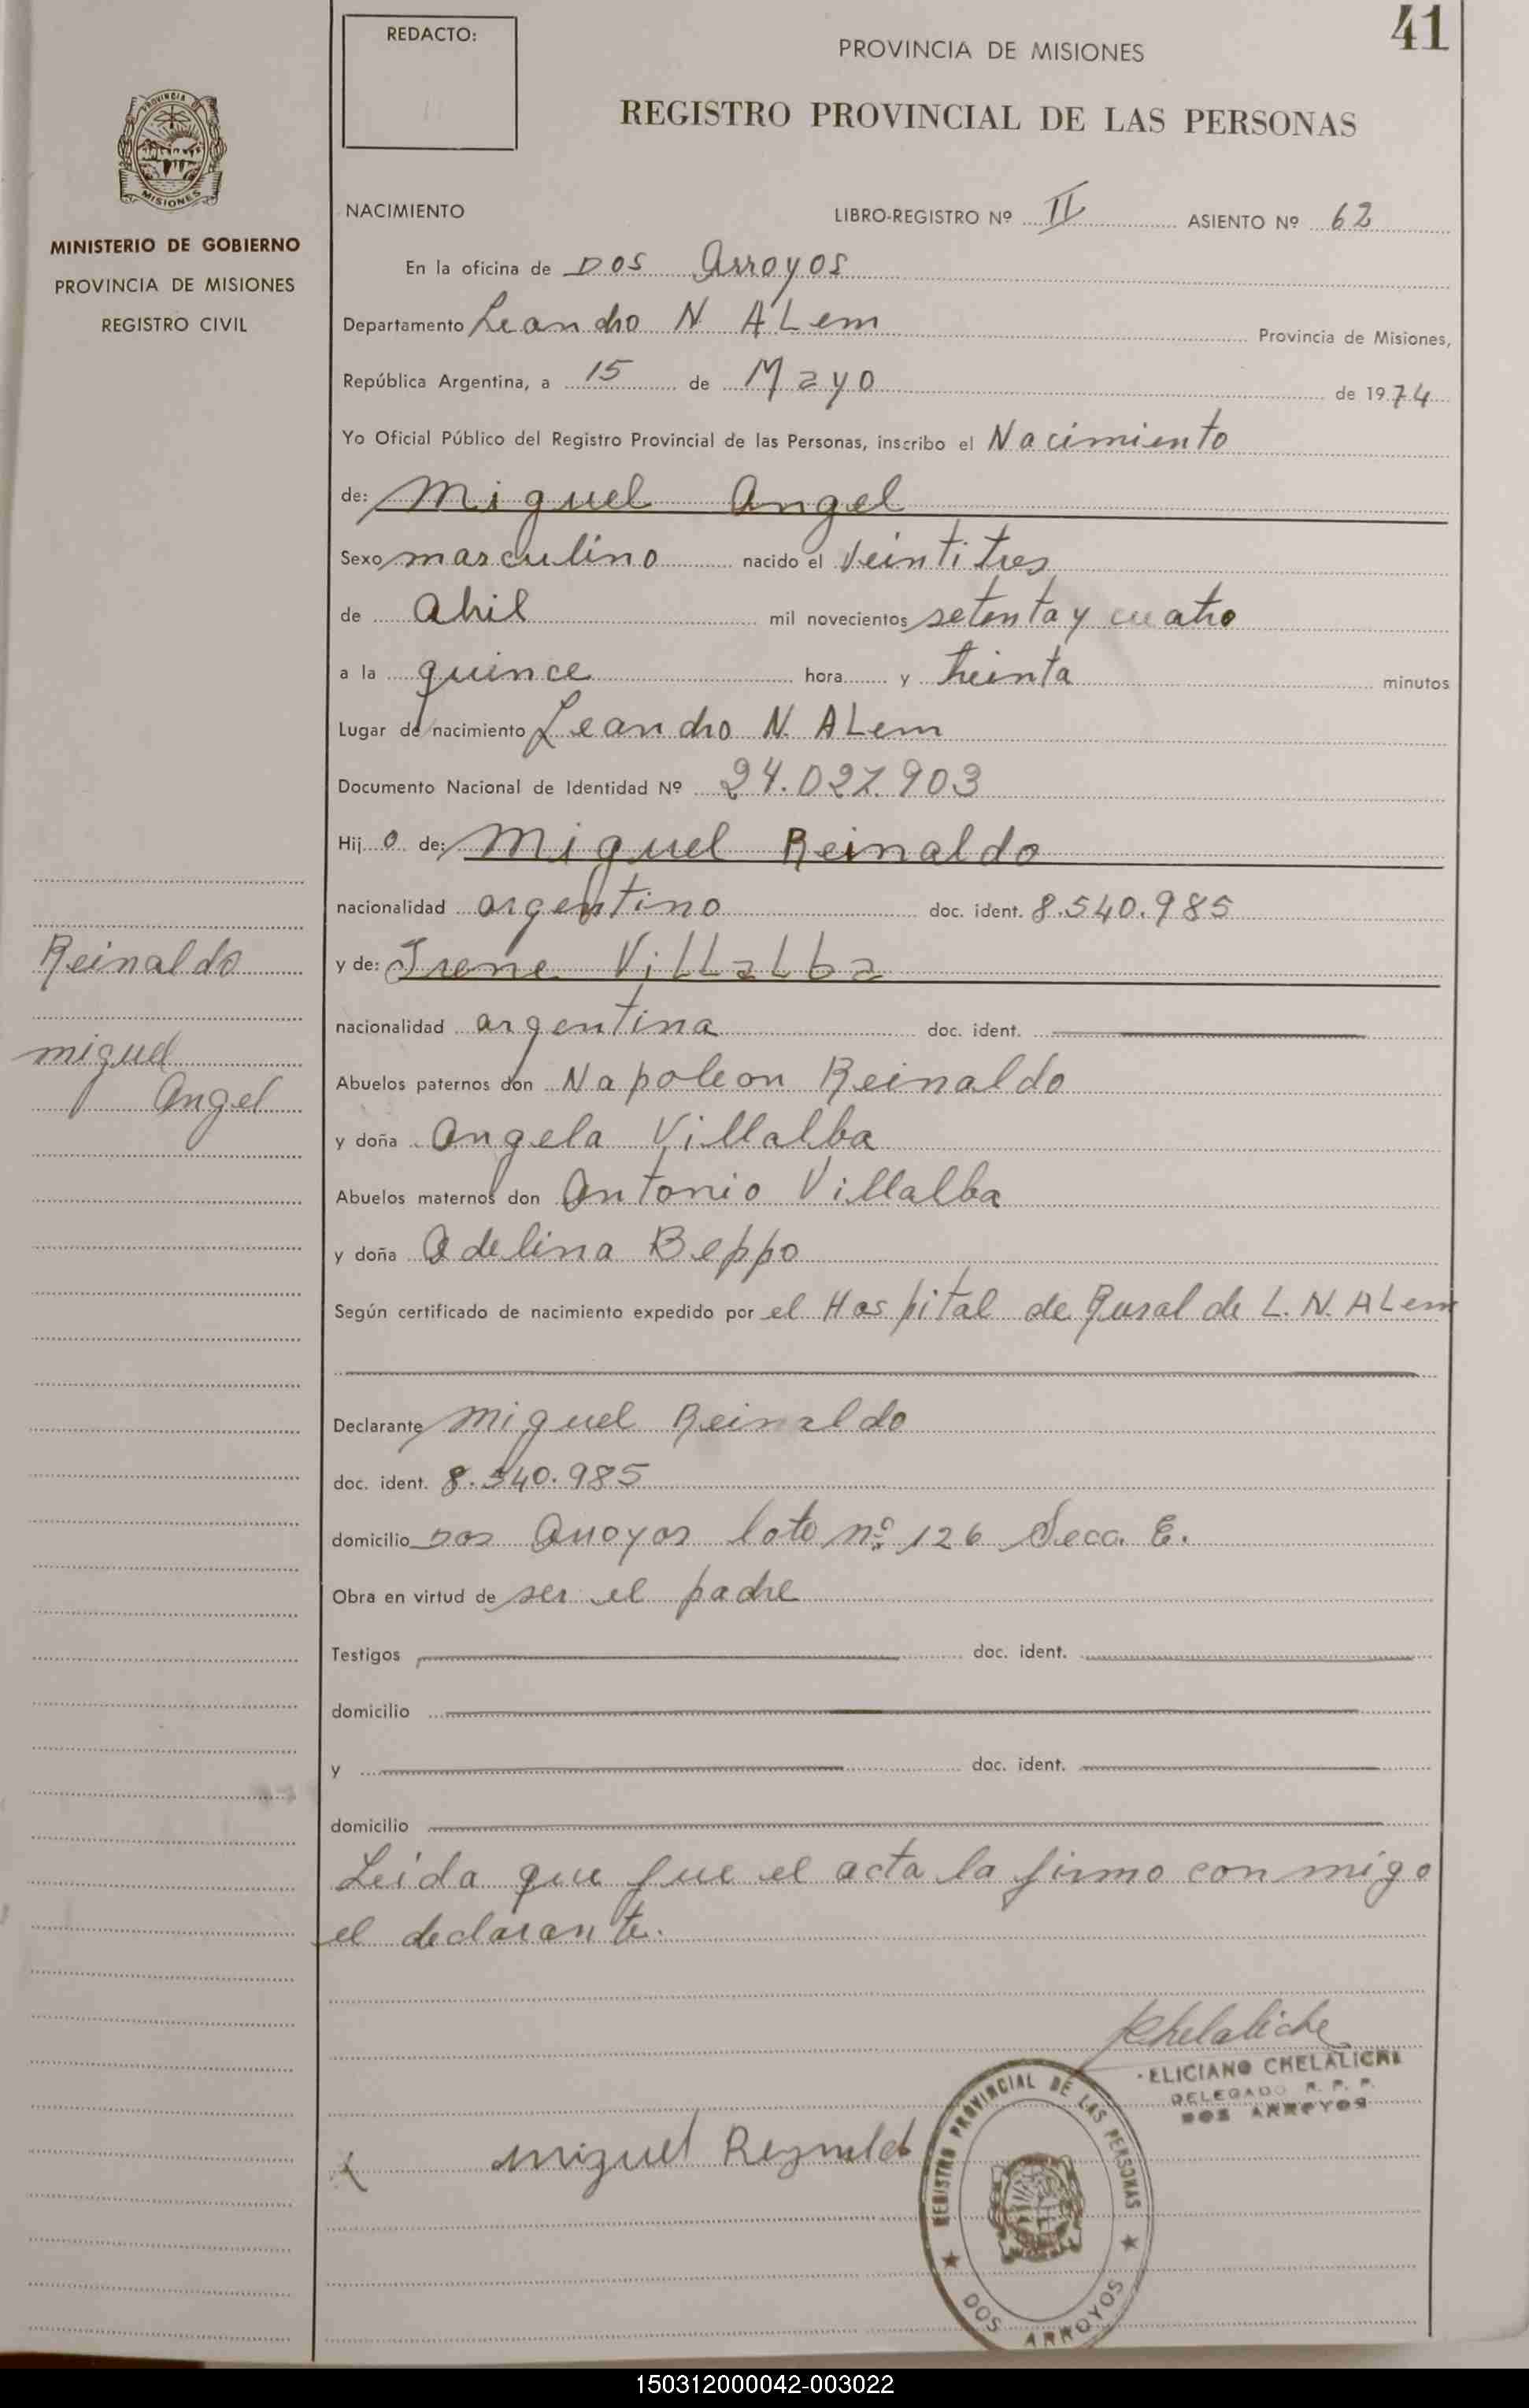 41
REDACTO:
PROVINCIA DE MISIONES
REGISTRO PROVINCIAL DE LAS PERSONAS
PROVINCIA DE
MISIONES
MINISTERIO DE GOBIERNO
PROVINCIA DE MISIONES
REGISTRO CIVIL
NACIMIENTO LIBRO-REGISTRO Nº II ASIENTO Nº 62
En la oficina de Dos Arroyos
Departamento Leandro N ALem Provincia de Misiones,
República Argentina, a 15 de Mayo de 1974
Yo Oficial Público del Registro Provincial de las Personas, inscribo el Nacimiento
de: Miguel Angel
Sexo masculino nacido el veintitres
de Abril mil novecientos setenta y cuatro
a la quince hora y treinta minutos
Lugar de nacimiento Leandro N. ALem
Documento Nacional de Identidad Nº 24.027.903
Hijo de: Miguel Reinaldo
nacionalidad argentino doc. ident. 8.540.985
y de: Irene ViLLaLba
nacionalidad argentina doc. ident.
Abuelos paternos don Napoleon Reinaldo
y doña Angela Villalba
Abuelos maternos don Antonio Villalba
y doña Adelina Beppo
Según certificado de nacimiento expedido por el Hospital de Rural de L. N. ALem
Declarante Miguel Reinaldo
doc. ident. 8.540.985
domicilio Dos Arroyos lote nº 126 Secc. E.
Obra en virtud de ser el padre
Testigos doc. ident.
domicilio
y doc. ident.
domicilio
Leida que fue el acta la firmo con migo
el declarante.
Reinaldo
miguel
Angel
Chelaliche
ELICIANO CHELALICHE
DELEGADO R. P. P.
DOS ARROYOS
X Miguel Reynaldo
REGISTRO PROVINCIAL DE LAS PERSONAS
DOS ARROYOS
150312000042-003022